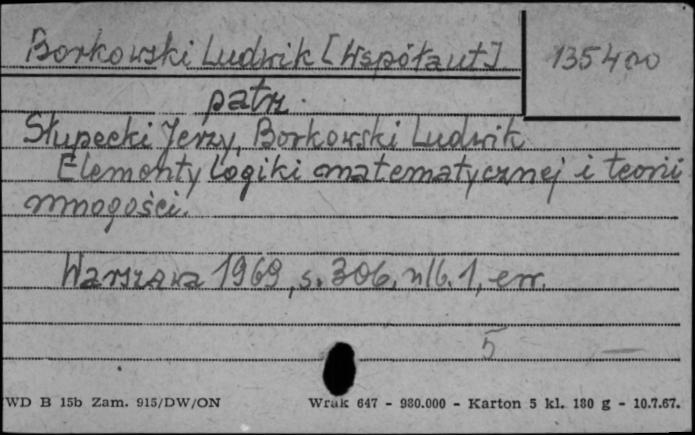 Borkowski Ludwik [Współaut] 135400
patrz.
Słupecki Jerzy, Borkowski Ludwik
Elementy logiki matematycznej i teorii
mnogości.
Warszawa 1969, s. 306, nlb. 1, err.
5 —
WD B 15b Zam. 915/DW/ON Wrak 647 - 980.000 - Karton 5 kl. 180 g - 10.7.67.